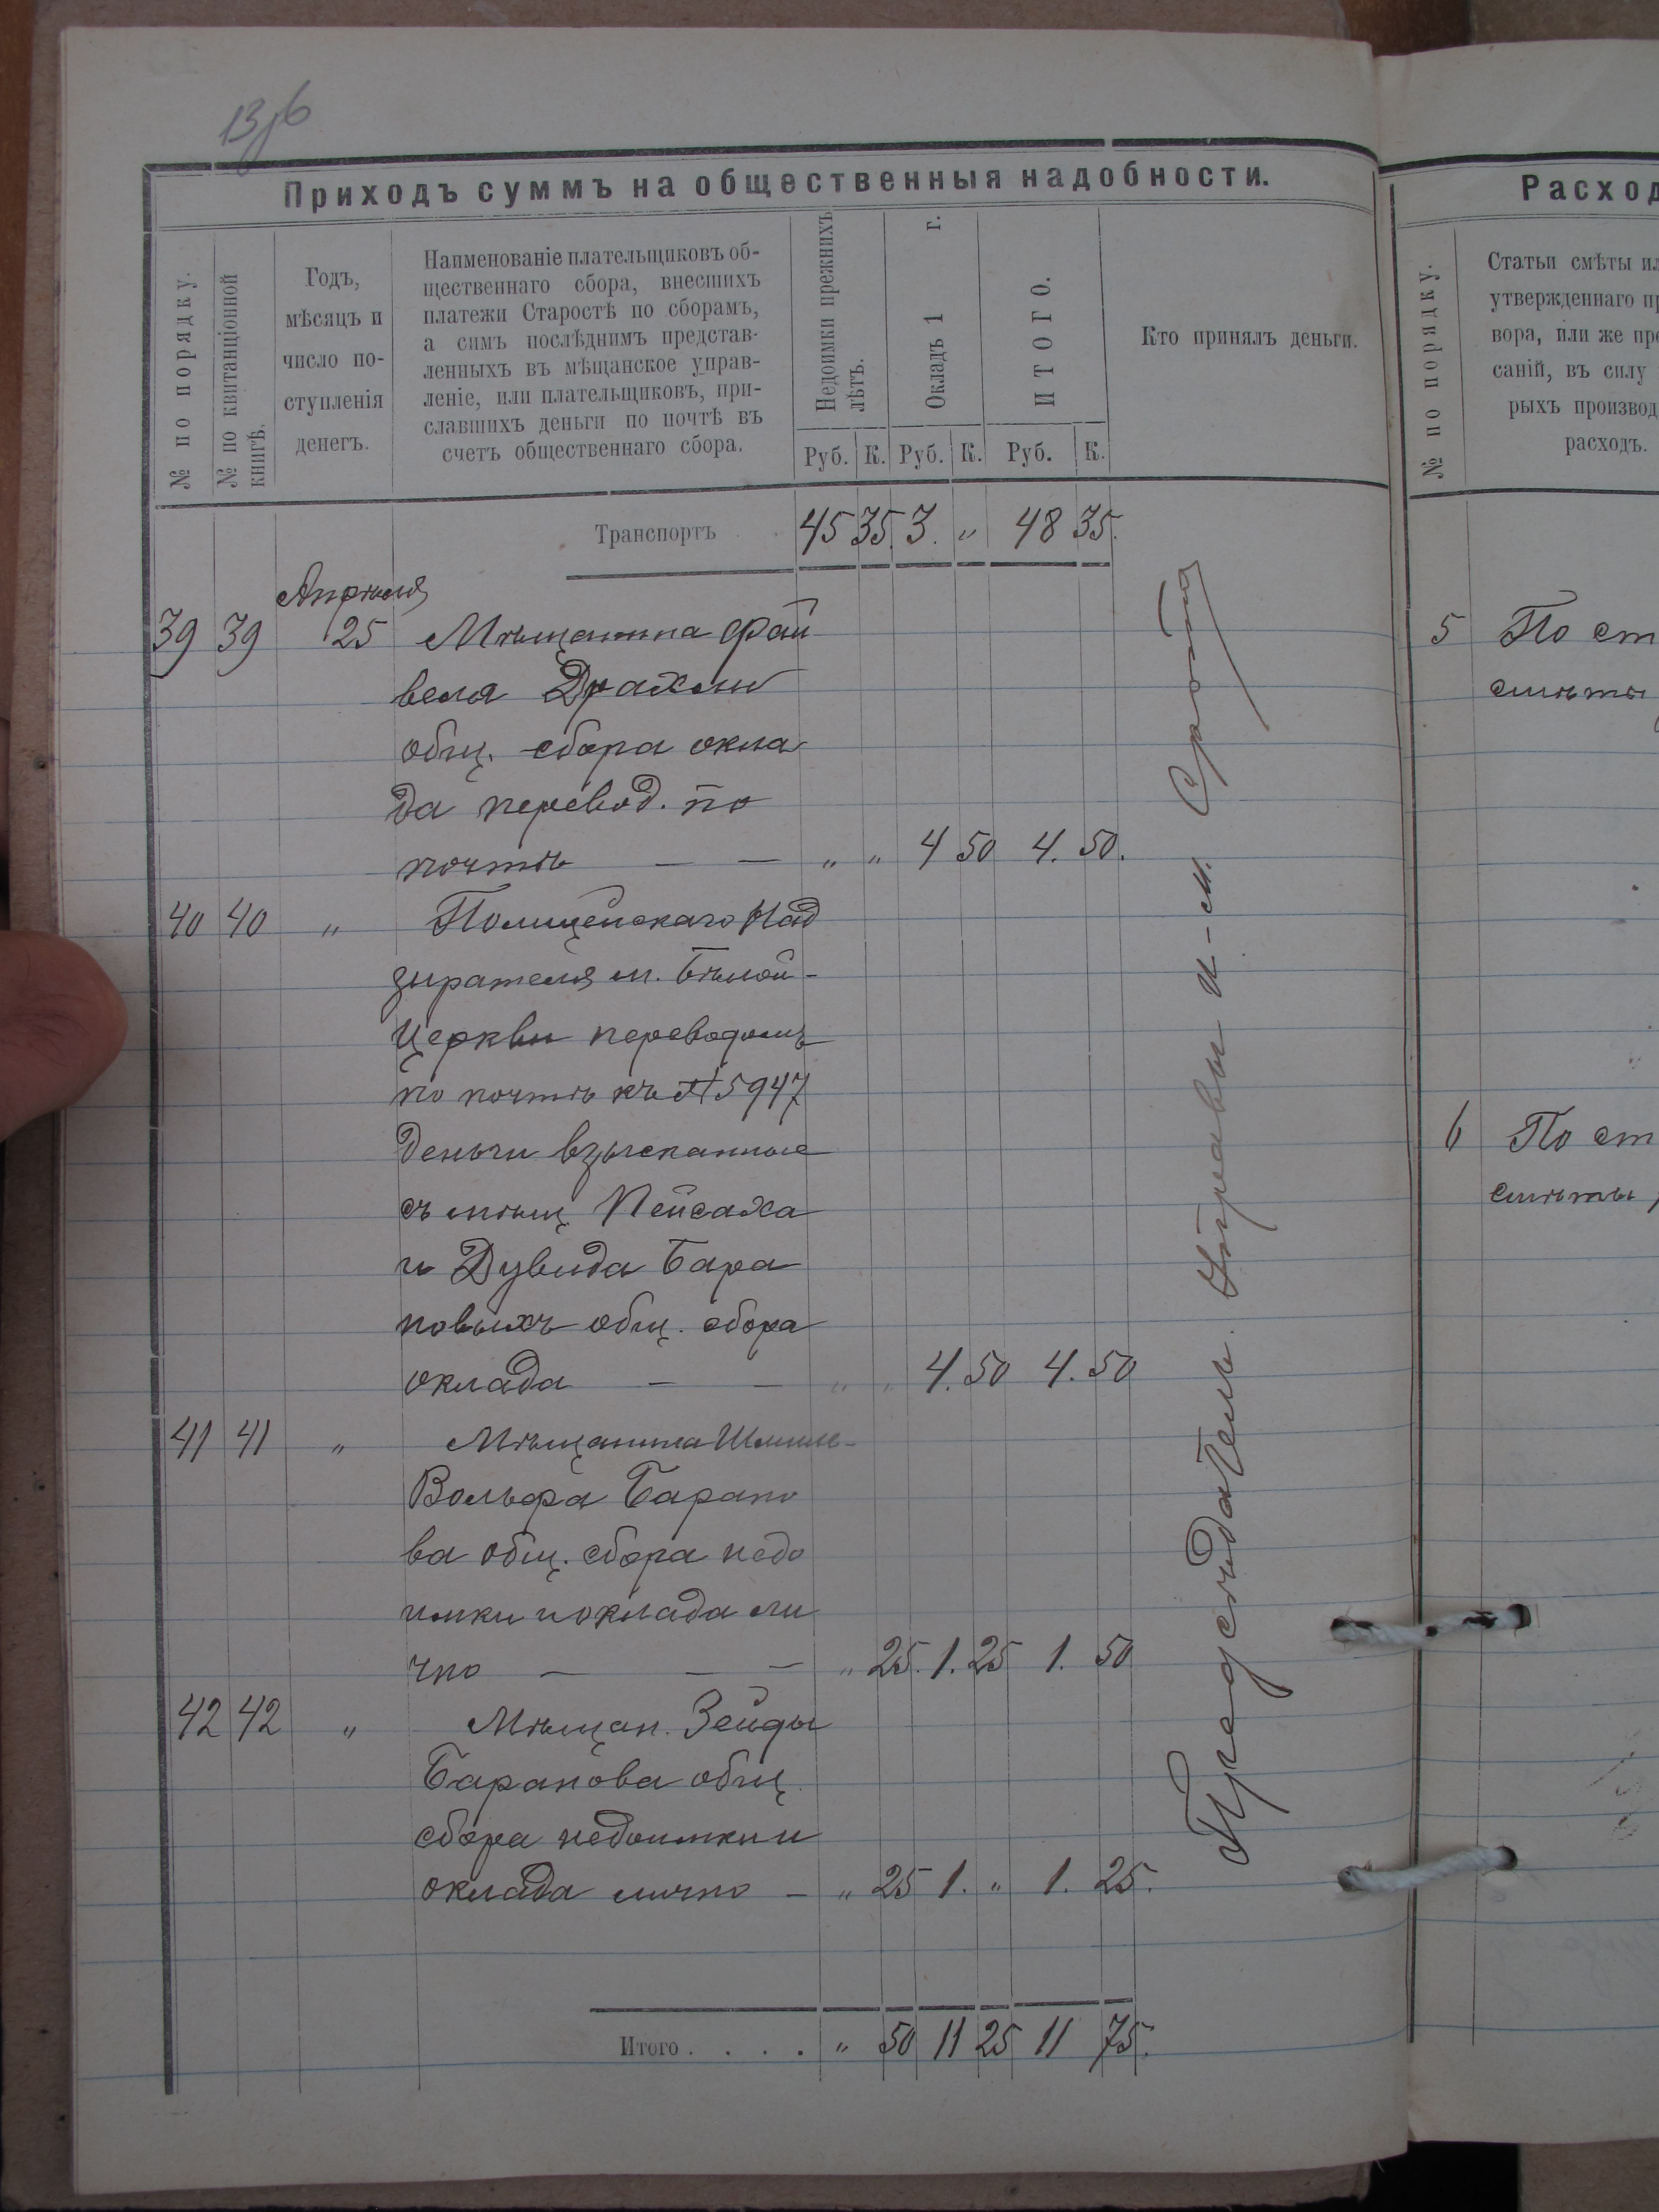 13об
Приходъ суммъ на общественныя надобности.
№ по порядку.
№ по квитанціонной
книгѣ.
Годъ,
мѣсяцъ и
число по-
ступленія
денегъ.
Наименованіе плательщиковъ об-
щественнаго сбора, внесшихъ
платежи Старостѣ по сборамъ,
а симъ послѣднимъ представ-
ленныхъ въ мѣщанское управ-
леніе, или плательщиковъ, при-
славшихъ деньги по почтѣ въ
счетъ общественнаго сбора.
Недоимки прежнихъ
лѣтъ.
Окладъ 1 г.
ИТОГО.
Руб. К. Руб. К. Руб. К.
Кто принялъ деньги.
Транспортъ 45 35. 3. „ 48 35.
Апрѣля
39 39 25 Мѣщанина Фай
веля Драхли
общ. сбора окла
да перевод. по
почтѣ — — „ „ 4 50 4. 50.
40 40 „ Полицейскаго Над
зирателя м. Бѣлой-
Церкви переводомъ
по почтѣ къ № 5947
деньги взысканные
съ мѣщ. Пейсаха
и Дувида Бара
новыхъ общ. сбора
оклада — — „ „ 4. 50 4. 50
41 41 „ Мѣщанина
Вольфа Барано
ва общ. сбора недо
имки и оклада ли
чно — — — „ 25. 1. 25 1. 50
42 42 „ Мѣщан. Зейды
Баранова общ.
сбора недоимки и
оклада лично — „ 25 1. „ 1. 25.
Итого . . . . „ 50 11 25 11 75.
Предсѣдатель Управы
Расход
№ по порядку.
Статьи смѣты ил
утвержденнаго пр
вора, или же пре
саній, въ силу
рыхъ производ
расходъ.
5 По ст
смѣты
6 По ст
смѣты